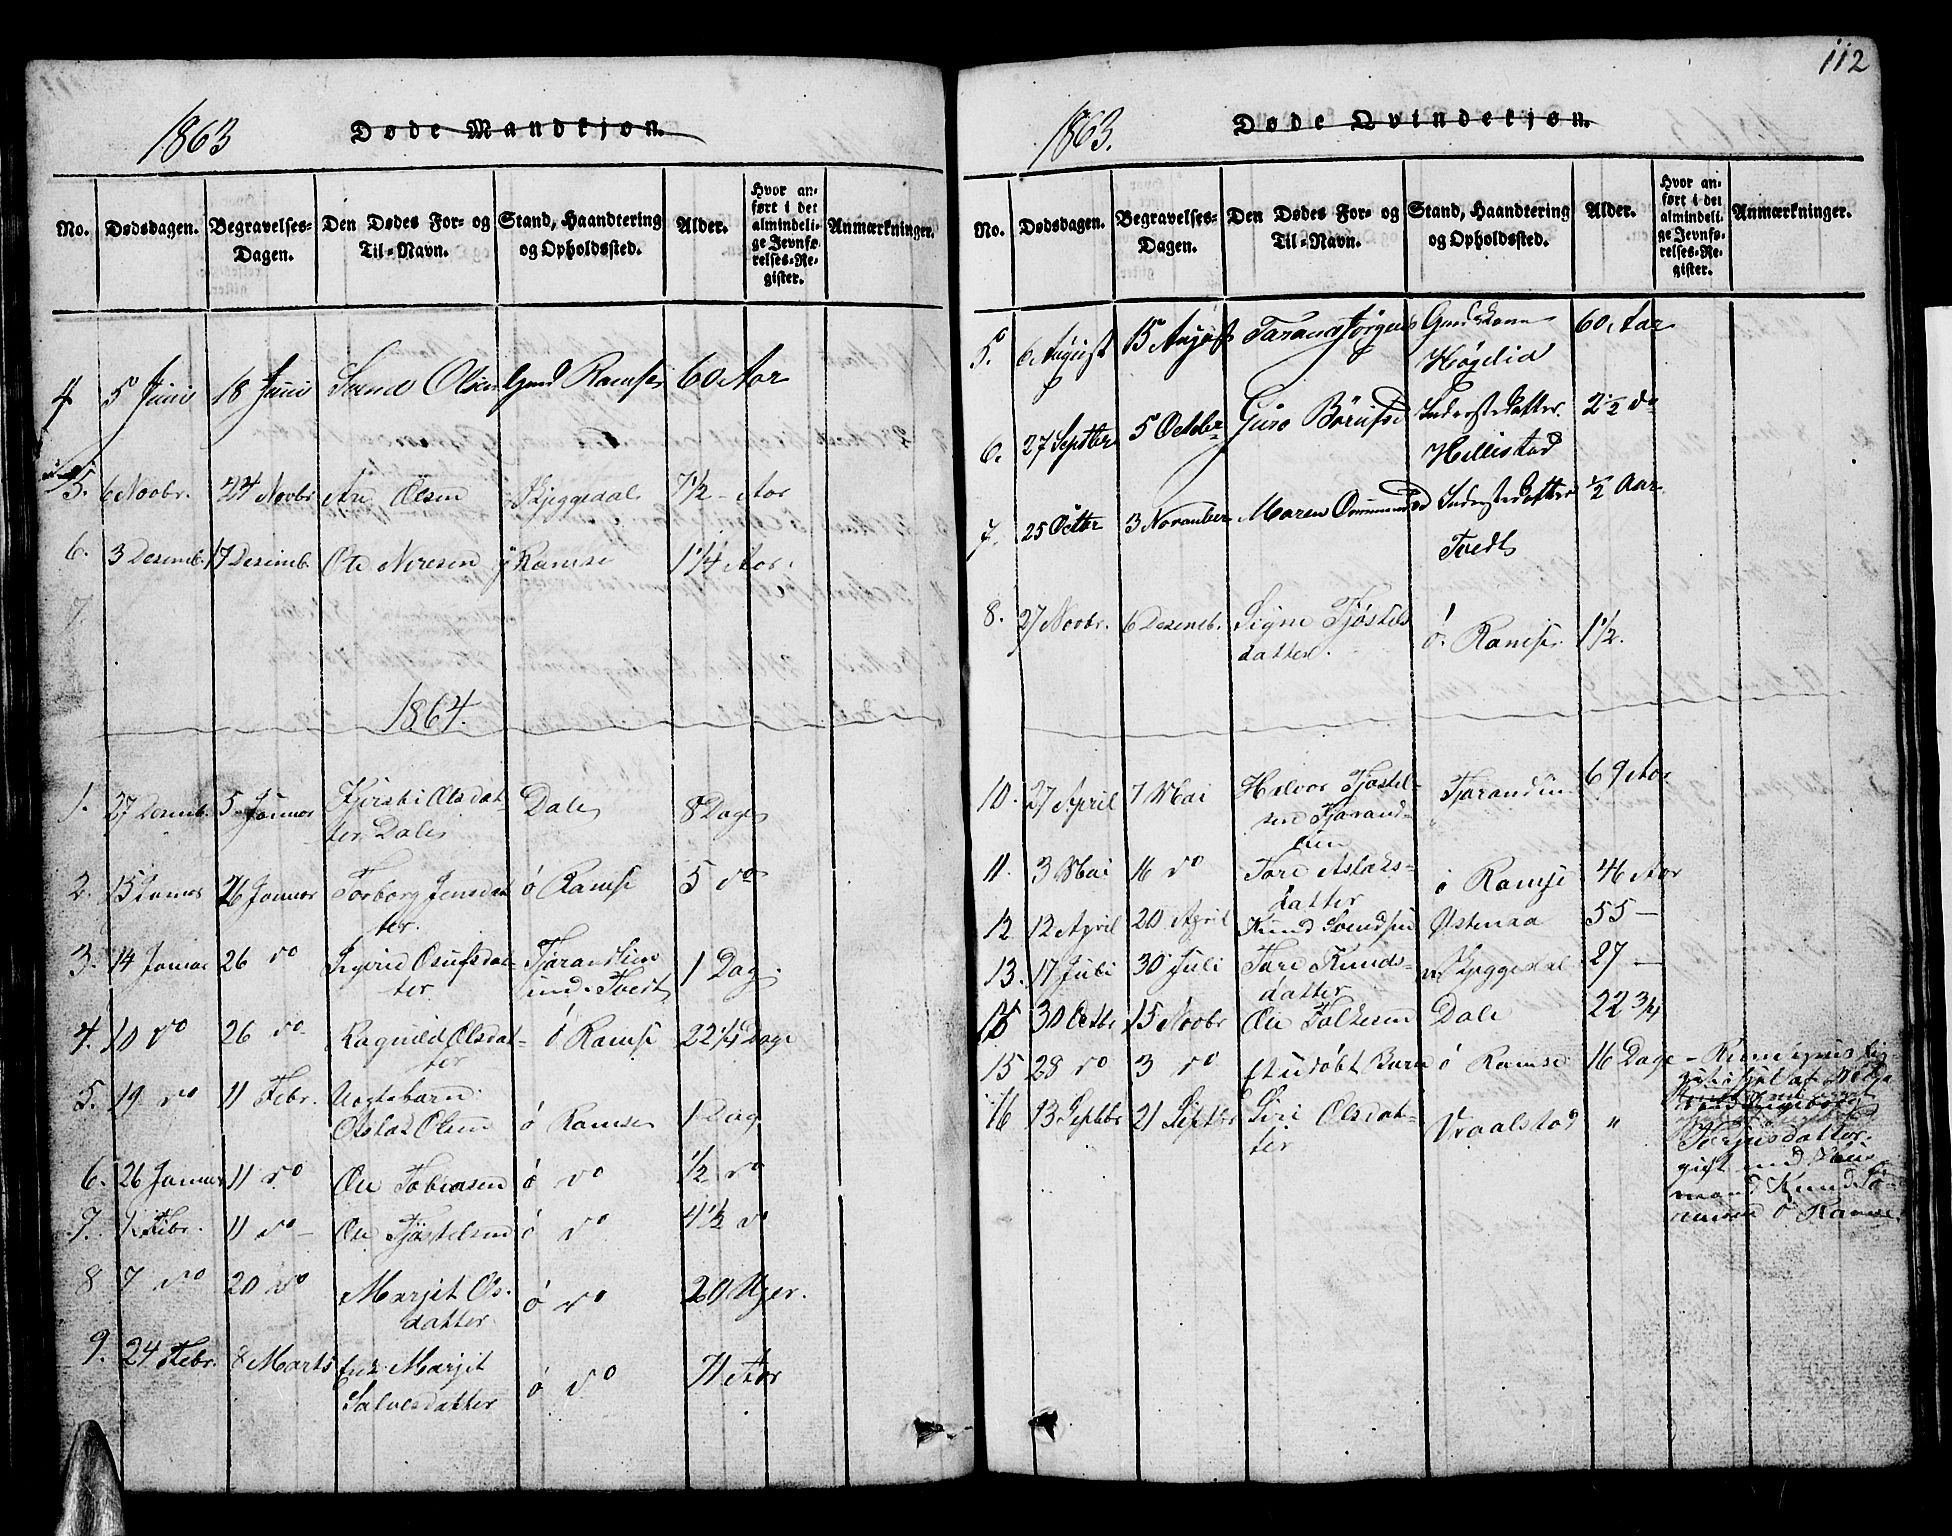 112
1863 Døde Mandkjøn.
No. Dødsdagen. Begravelses-Dagen. Den Dødes For- og Til-Navn. Stand, Haandtering og Opholdssted. Alder. Hvor anført i det almindelige Jevnførelses-Register. Anmærkninger.
4 5 Juni 18 Juni Svend Olsen Gmd Ramse 60 Aar
5. 6 Novbr. 24 Novbr Ole Olsen Skjeggedal 7½ Aar
6. 3 Desemb. 17 Desemb. Ole Nirisen ø Ramse 1¼ Aar.
7.
1864.
1. 27 Desemb. 5 Januar Kjersti Olsdat-
ter Dale Dale 8 Dage
2. 15 Januar 26 Januar Torborg Jensdat
ter. ø Ramse 5 do
3. 14 Januar 26 do Ingrid Osufsdat-
ter Tjørandlien
und. Tvedt 1 Dag.
4. 10 do 26 do Ragnild Olsdat-
ter ø Ramse 22¼ Dage
5. 19 do 11 Febr.
Aslak Olsen ø Ramse 1 Dag
6. 26 Januar 11 do Ole Tobiasen ø do ½ do
7. 1 Febr. 11 do Ole Tjøstelsen ø do 4½ do
8 7 do 20 do Marjit Ols-
datter ø do 20 Uger.
9. 24 Febr. 8 Marts Enk. Marjit
Salvesdatter ø do 71 Aar
1863. Døde Qvindekjøn.
No. Dødsdagen. Begravelses-Dagen. Den Dødes For- og Til-Navn. Stand, Haandtering og Opholdssted. Alder. Hvor anført i det almindelige Jevnførelses-Register. Anmærkninger.
5. 6 August 15 August Taran Jørgens Gmdskone
Høgelia 60 Aar
6. 27 Septbr 5 Octobr Guro Børufsd Inderstedatter.
Hillistad 2½ do
7. 25 Octbr 3 November Maren Ommundsd Inderstedatter
Tvedt ½ Aar
8. 27 Novbr. 6 Desemb. Signe Tjøstels
datter. ø. Ramse 1½.
10. 27 April 7 Mai Helvor Tjøstel-
sen Tjørand-
lien Tjørandlien 69 Aar
11. 3 Mai 16 do Tore Aslaks-
datter ø Ramse 46 Aar
12 12 April 20 April Knud Svendsen Østenaa 55 —
13. 17 Juli 30 Juli Tore Knuds-
datter Skjeggedal 27 —
15 30 Octbr 15 Novbr Ole Falkesen Dale 22¾
15 28 do 3 do et udøbt Barn ø Ramse 16 Dage
16 13 Septbr 21 Septbr Siri Olsdat-
ter Vraalstad "
datter
gift med
mand Knud
ø Ramse.